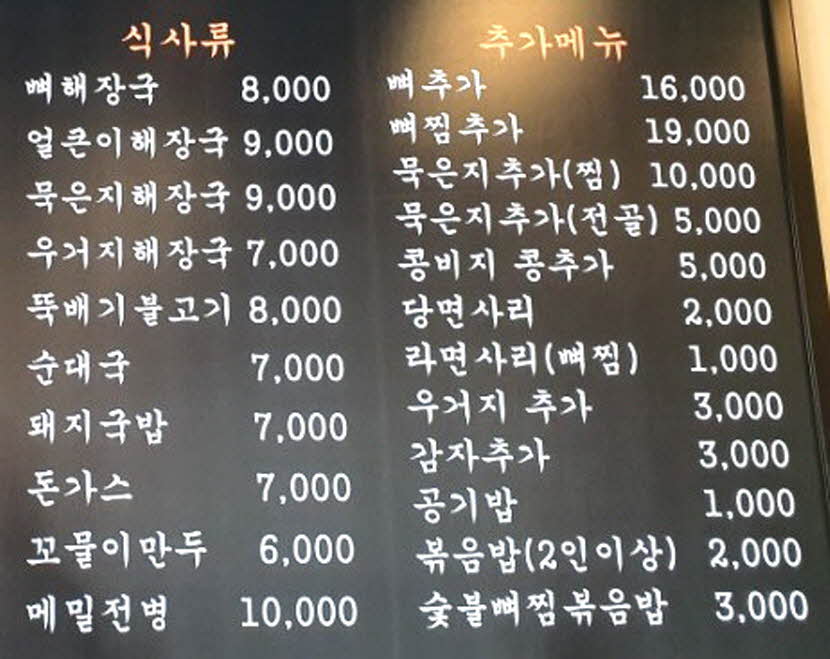 식사류
뼈해장국 8,000
얼큰이해장국 9,000
묵은지해장국 9,000
우거지해장국 7,000
뚝배기불고기 8,000
순대국 7,000
돼지국밥 7,000
돈가스 7,000
꼬물이만두 6,000
메밀전병 10,000
추가메뉴
뼈추가 16,000
뼈찜추가 19,000
묵은지추가(찜) 10,000
묵은지추가(전골) 5,000
콩비지 콩추가 5,000
당면사리 2,000
라면사리(뼈찜) 1,000
우거지 추가 3,000
감자추가 3,000
공기밥 1,000
볶음밥(2인이상) 2,000
숯불뼈찜볶음밥 3,000